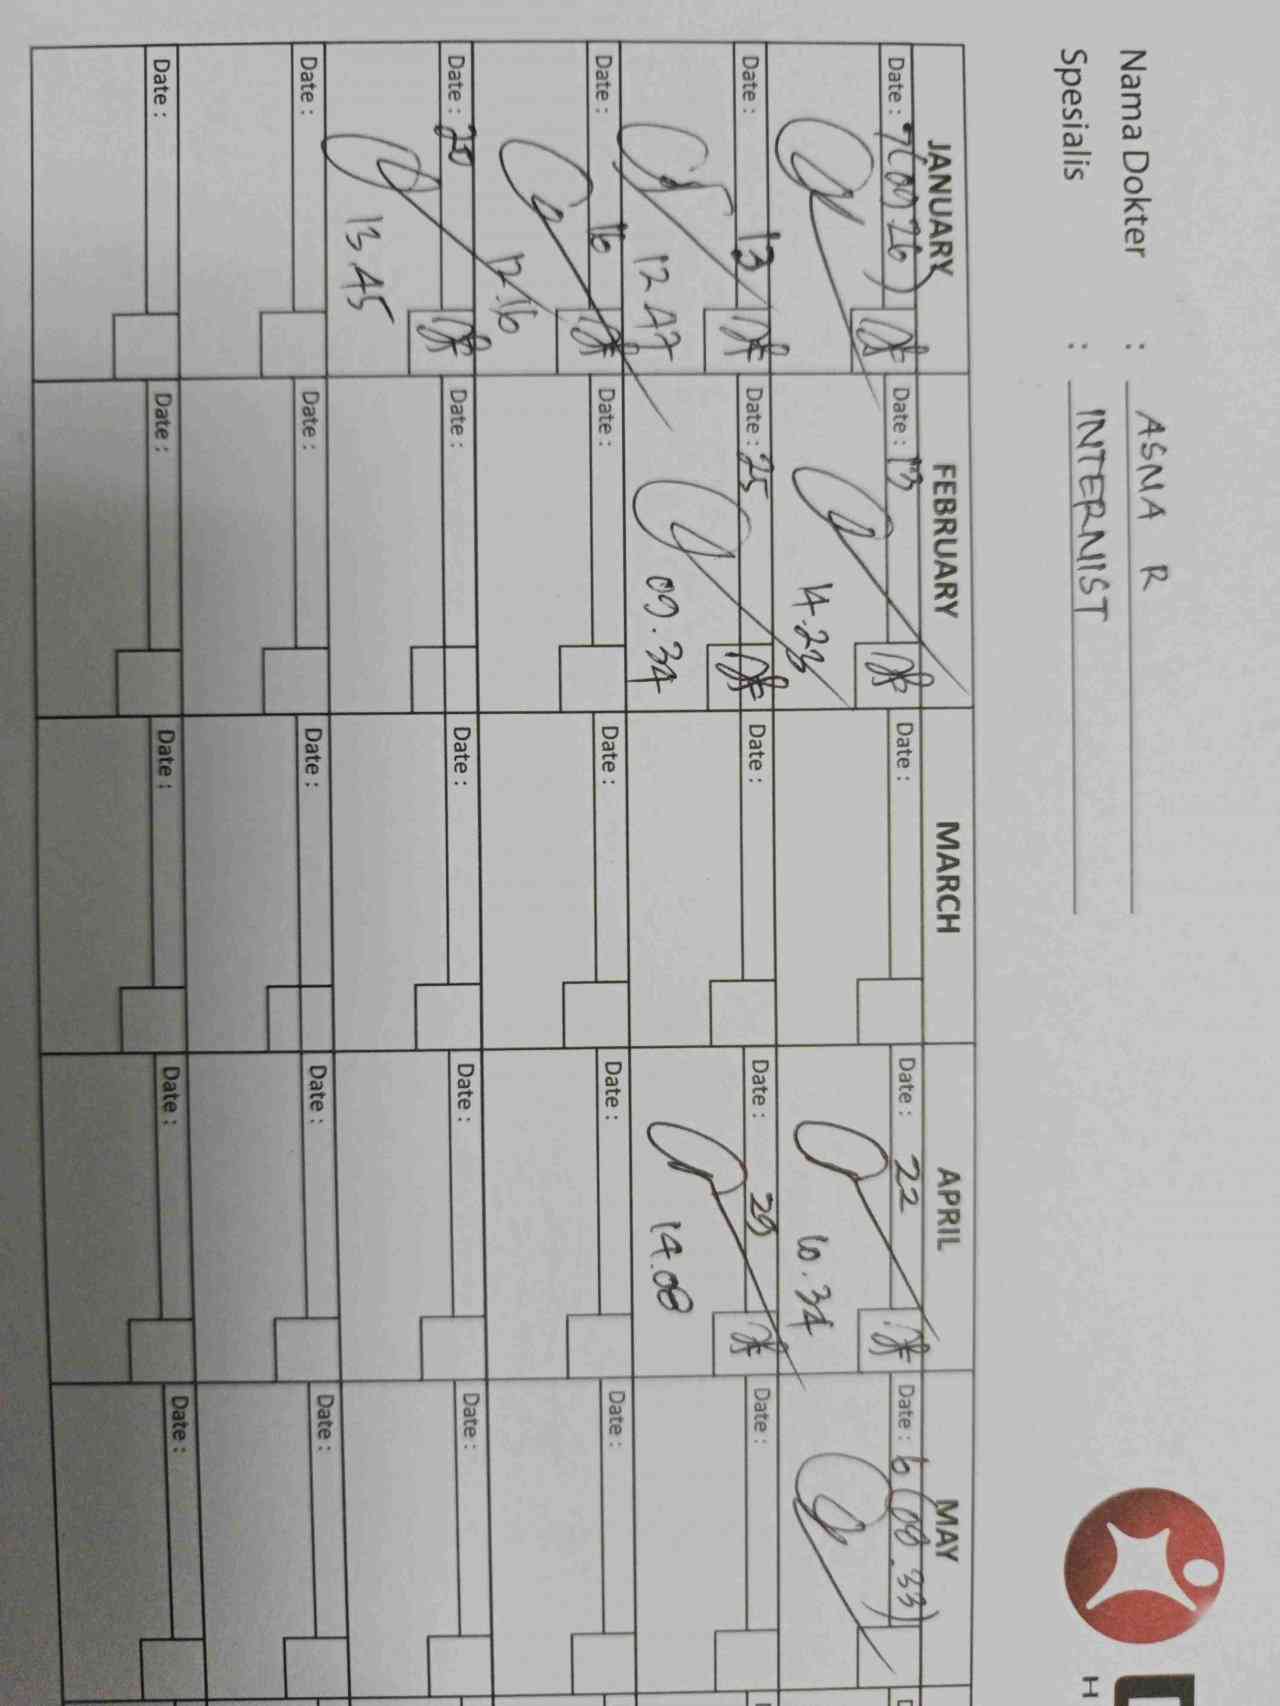 Nama Dokter : ASNA R
Spesialis : INTERNIST
H
JANUARY FEBRUARY MARCH APRIL MAY
Date : 7(09 26) Date : 13 Date : Date : 22 Date : 6 (08.33)
14.23 10.34
Date : 13 Date : 25 Date : Date : 29 Date :
12 47 09.34 14.08
Date : 16 Date : Date : Date : Date :
12.16
Date : 20 Date : Date : Date : Date :
13.45
Date : Date : Date : Date : Date :
Date : Date : Date : Date : Date :